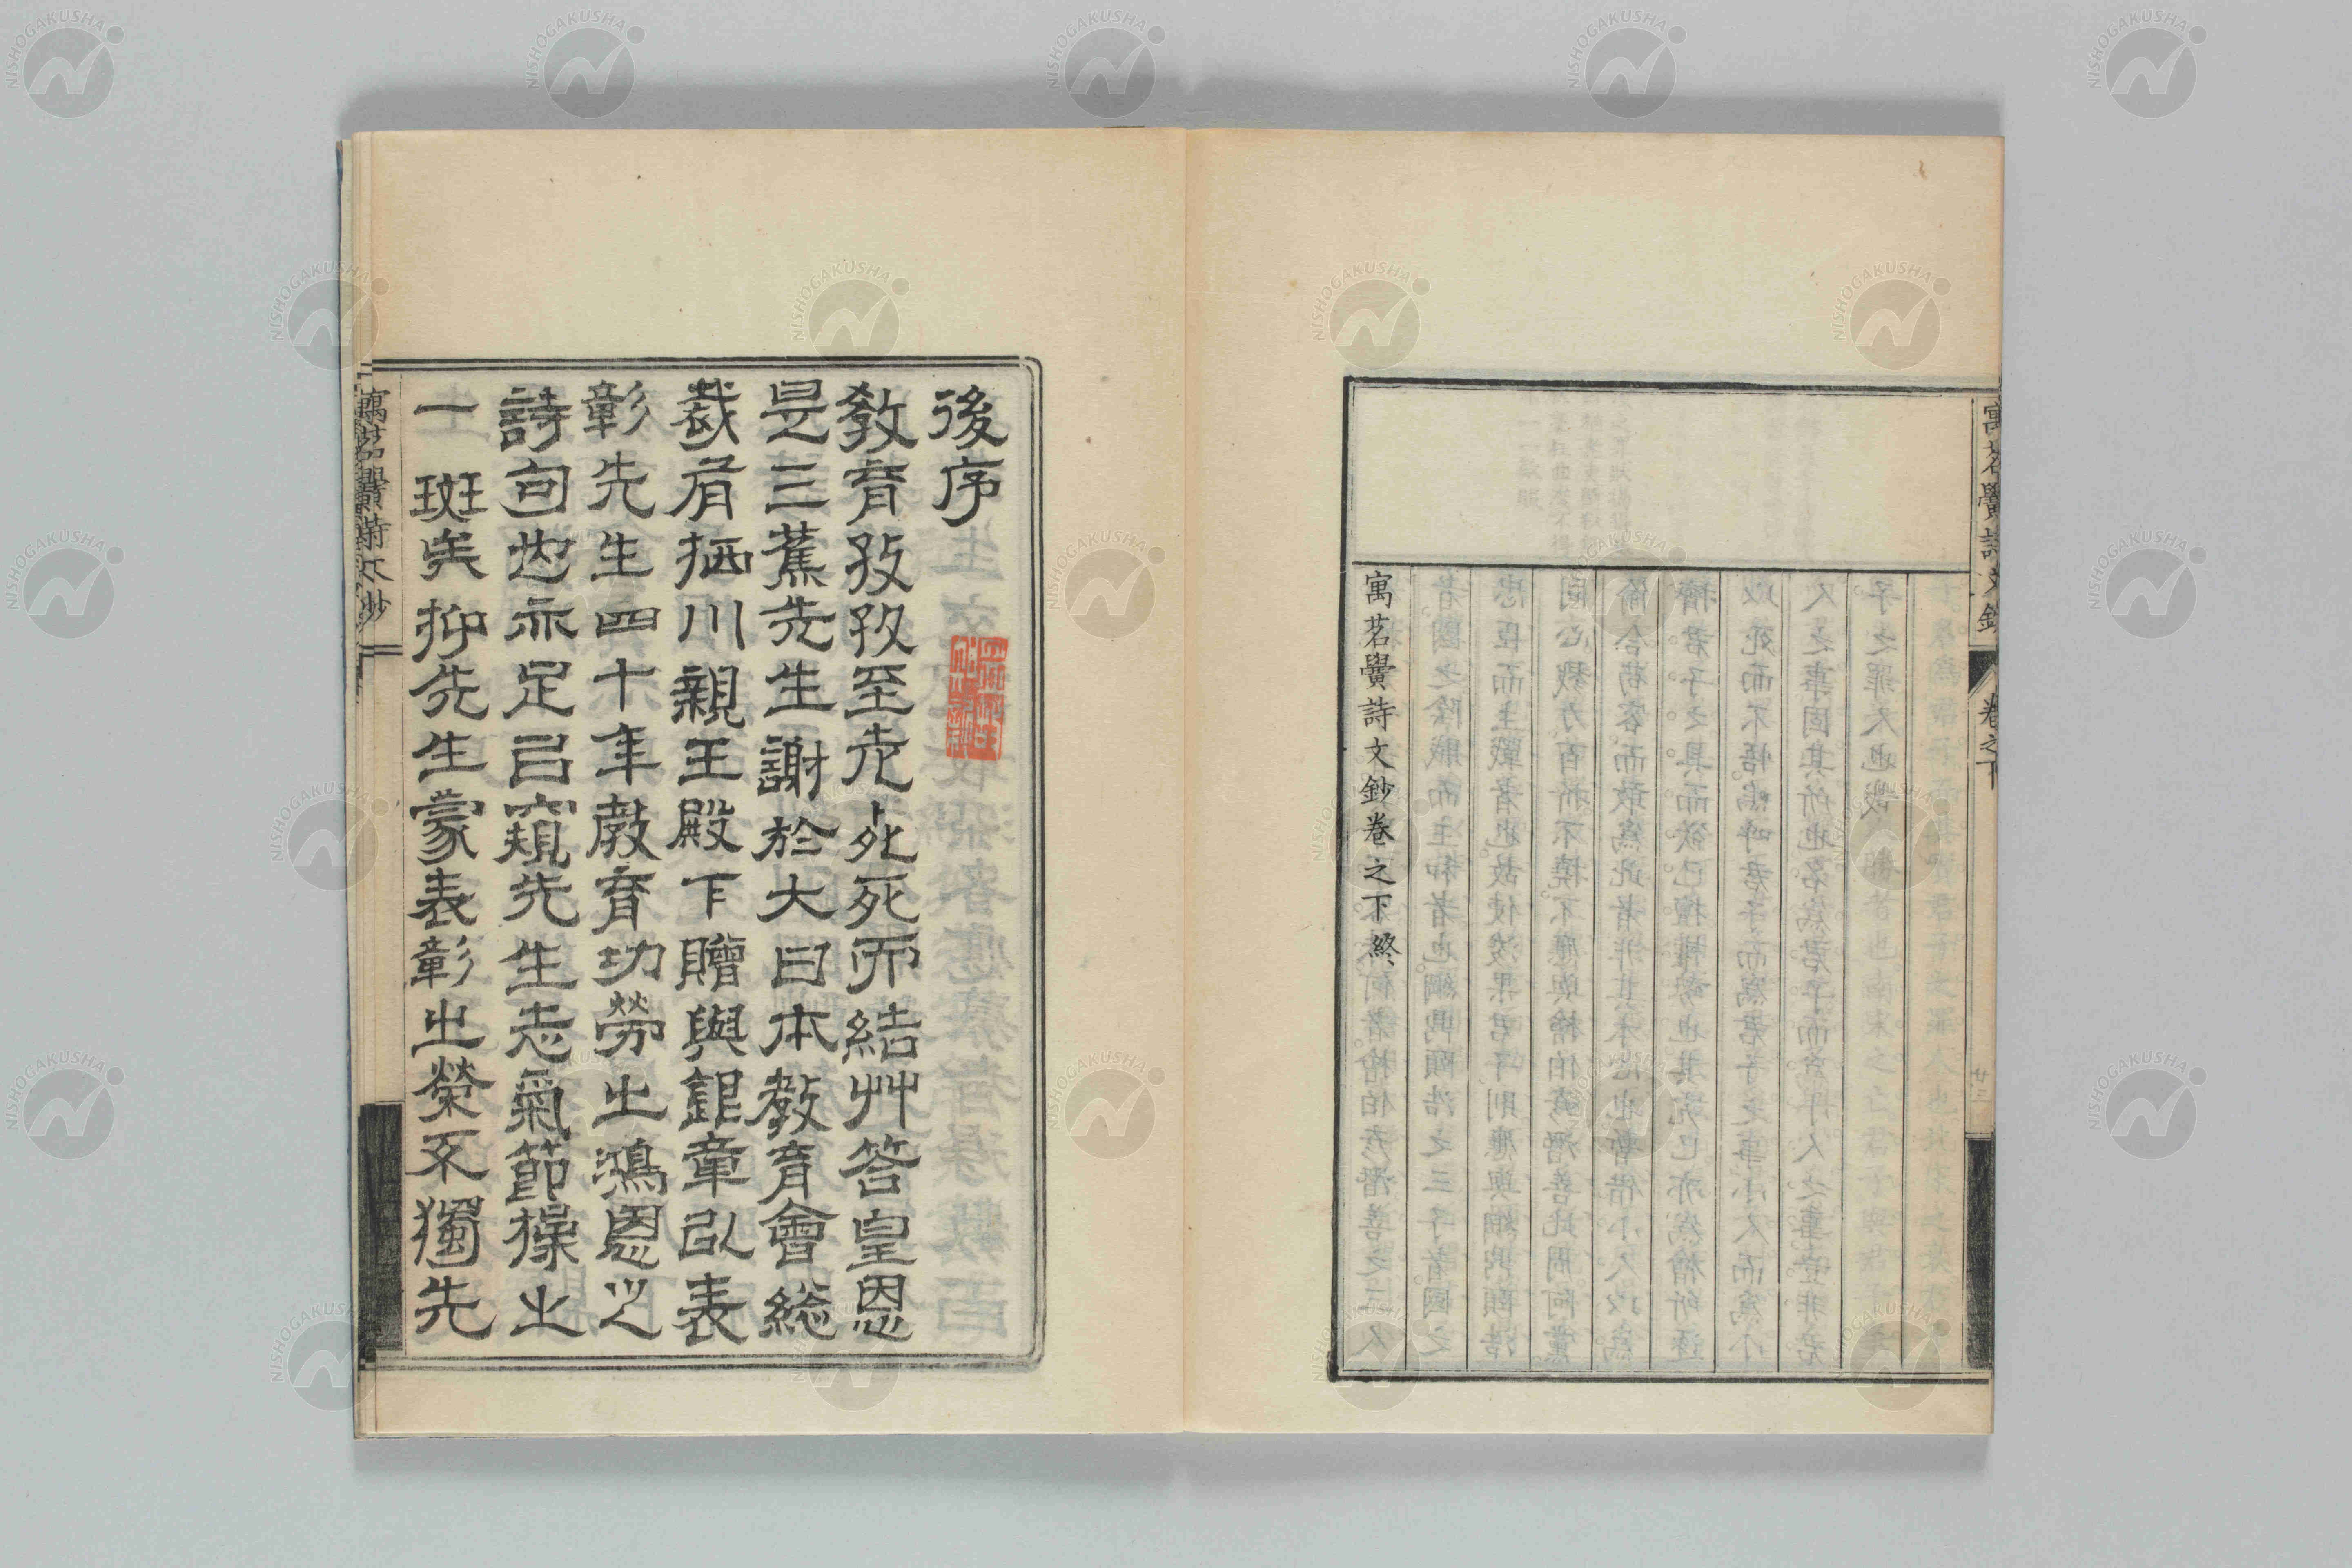 寓茗黌詩文鈔 卷之下
寓茗黌詩文鈔卷之下終
後序
教育孜孜至老卜死死而結艸答皇恩
是三蕉先生謝於大日本教育會総
裁有栖川親王殿下贈與銀章以表
彰先生四十年教育功勞之鴻恩之
詩句也亦足㠯窺先生志氣節操之
一斑矣抑先生蒙表彰之榮不獨先
寓茗黌詩文鈔
NISHOGAKUSHA